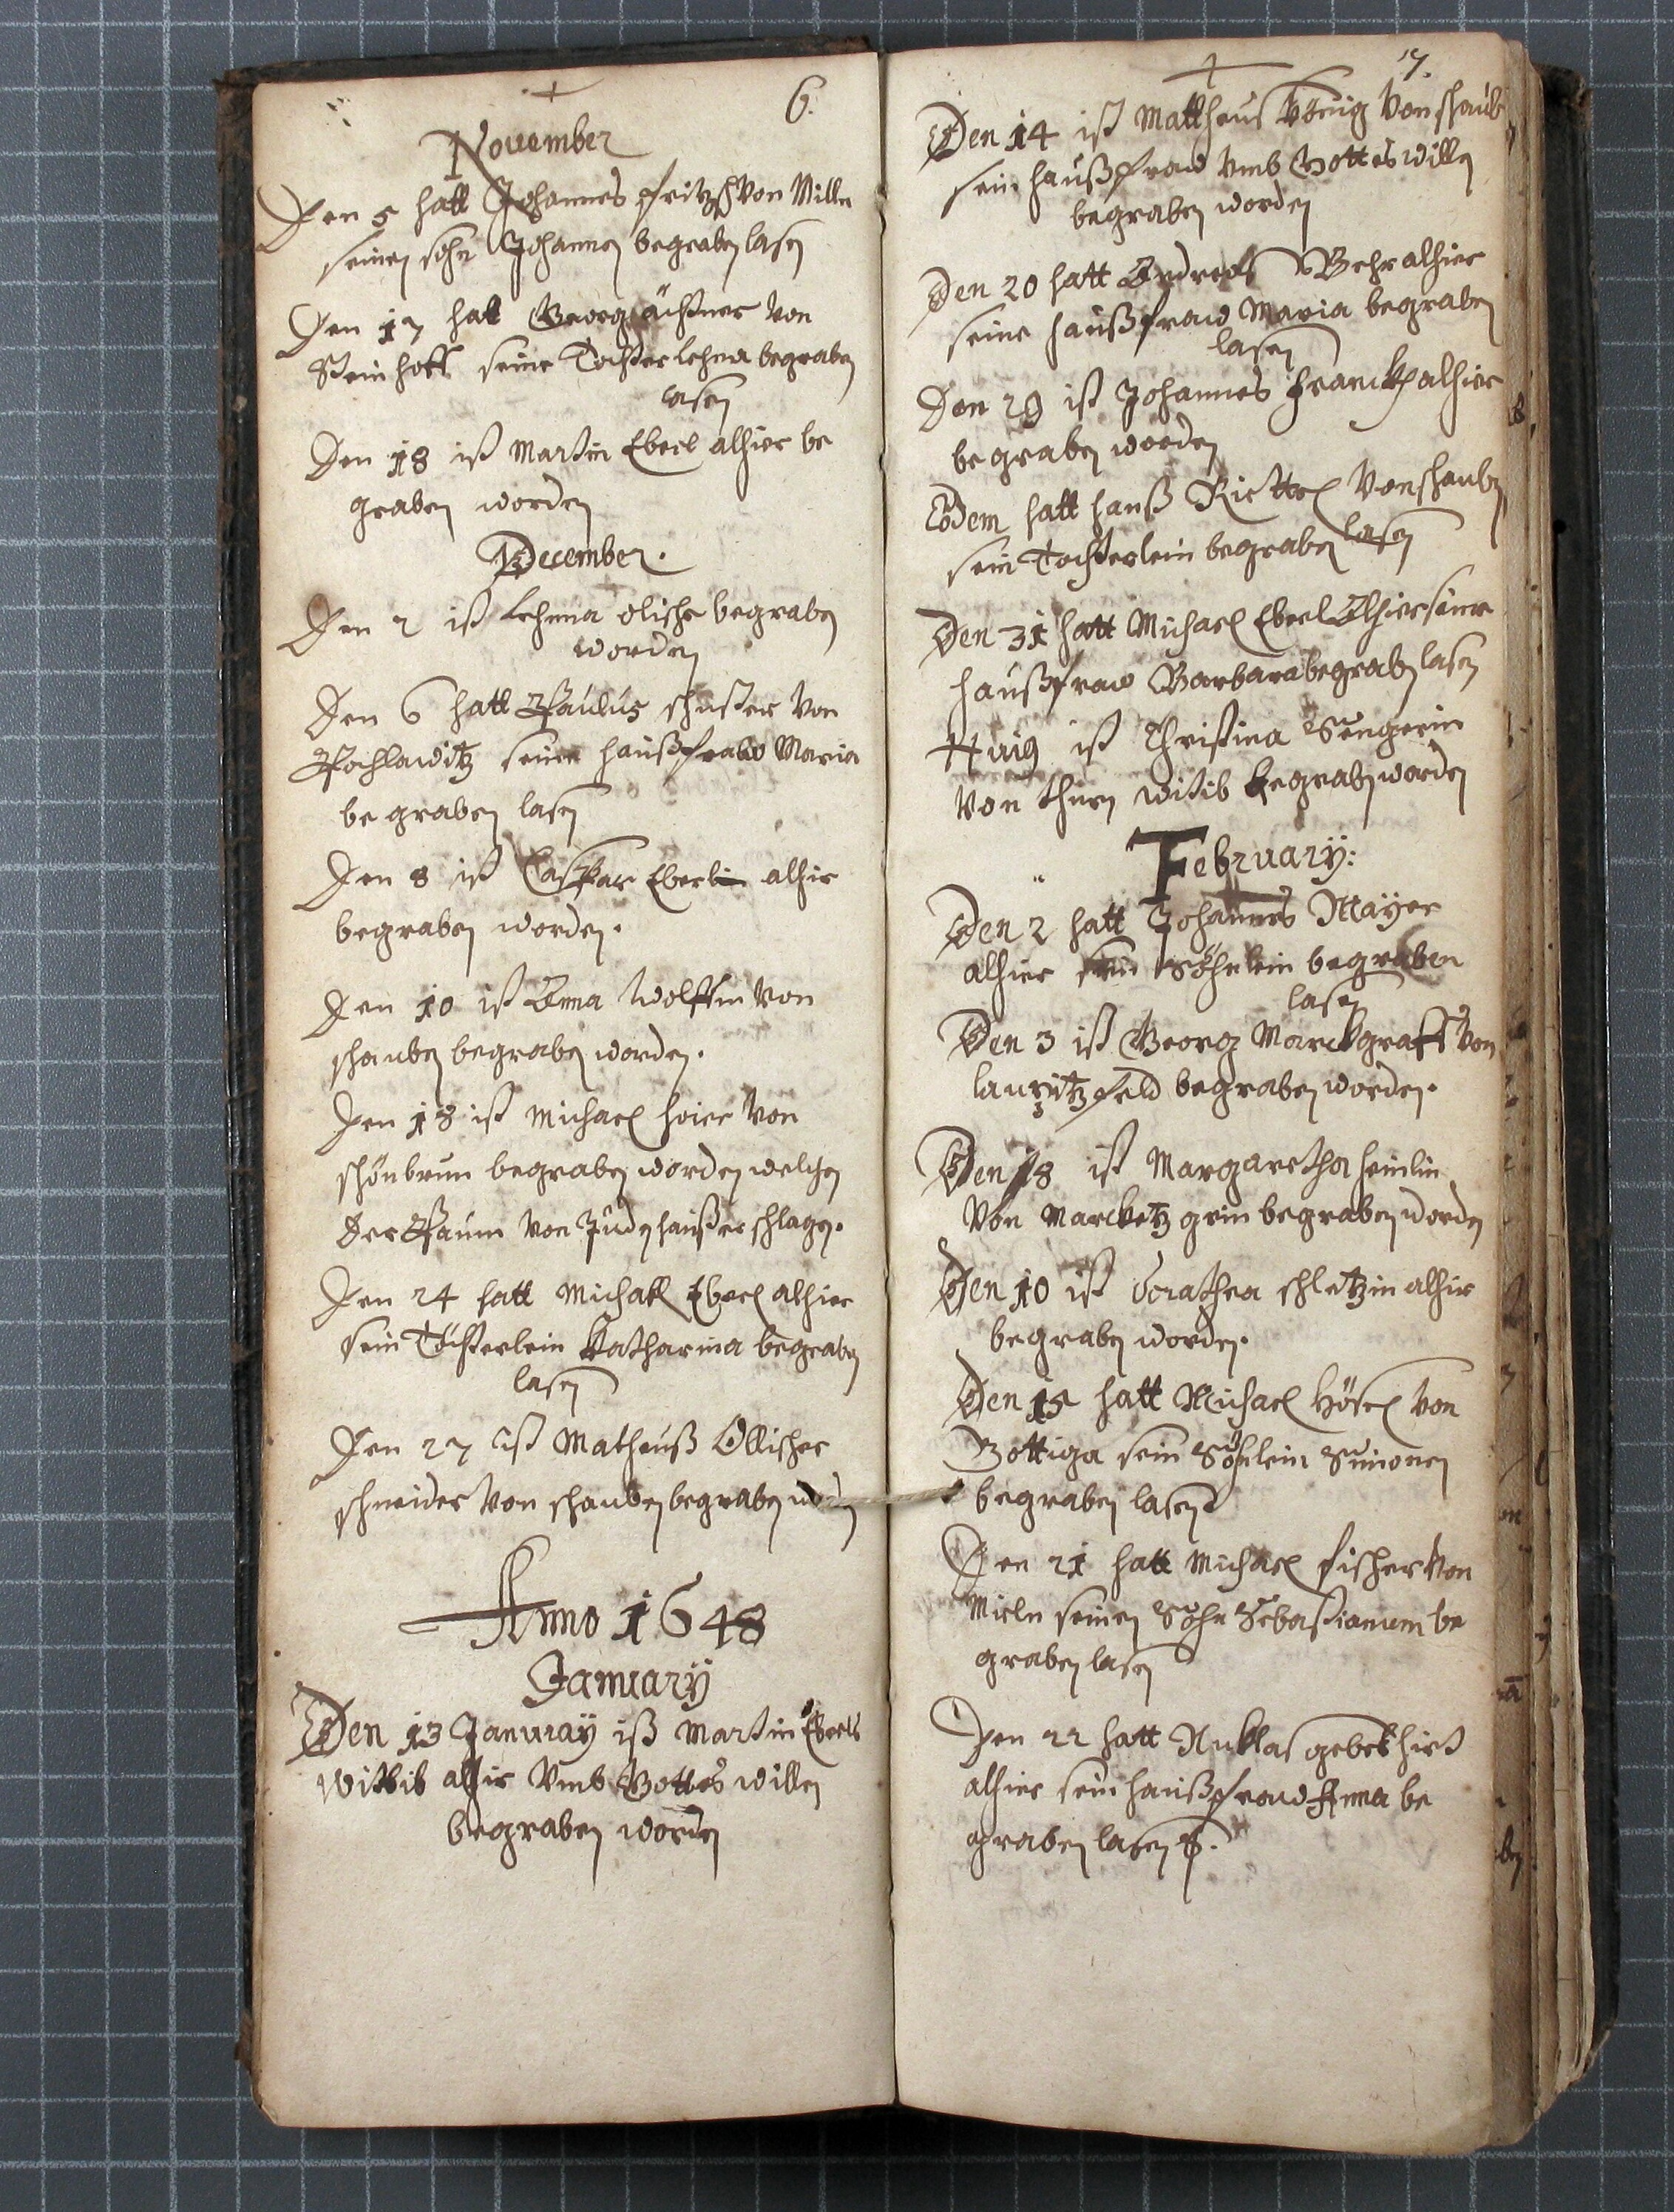 6.
November
Den 5 hatt Johannes Fritzsch von Milln
seinen sohn Johannen begraben lasen
Den 17 hatt Georg ächtner von
Steinhoff seine Tochter Lehna begraben
lasen
Den 18 ist Martin Eberl alhier be
graben worden
December.
Den 2 ist Lehnna olische begraben
worden
Den 6 hatt Paulus schuster von
Pochlawitz seine haußfraw Maria
begraben lasen
Den 8 ist Caspar Eberlin alhir
begraben worden.
Den 10 ist Anna Wolffin von
schauben begraben worden.
Den 18 ist Michael hoier von
schönbrun begraben worden welchen
der Paum von Juden hauß erschlagen.
Den 24 hatt Michael Eberl alhier
sein Töchterlein Katharina begraben
lasen
Den 27 ist Matheuß Ollischer
schneider von schauben begraben worden
Anno 1648
January
Den 13 January ist Martin Eberls
Wittib alhir vmb Gottes willen
begraben worden
7.
Den 14 ist Mattheus König von schaub
sein haußfraw vmb Gottes willen
begraben worden
Den 20 hatt Andreas Behr alhier
seine haußfraw Maria begraben
lasen
Den 29 ist Johannes Franck alhier
begraben worden
Eodem hatt hanß Richter von schauben
sein Tochterlein begraben lasen
Den 31 hatt Michael Eberl Alhier seine
haußfraw Barbara begraben lasen
ist Christina Sengerin
von thurn witib begraben worden
February:
Den 2 hatt Johannes Mayer
alhier sein Söhnlein begraben
lasen
Den 3 ist Georg Marckgraff von
begraben worden.
Den 8 ist Margaretha heinlin
von Marcketzgrin begraben worden
Den 10 ist Dorathea schletzin alhir
begraben worden.
Den 15 hatt Michael Hösel von
Gottiga sein Söhnlein Simonen
begraben lasen
Den 21 hatt Michael fischer von
Mieln seinen Sohn Sebastianum be
graben lasen
Den 22 hatt Nicklas gebekhirt
alhier sein haußfraw Anna be
graben lasen